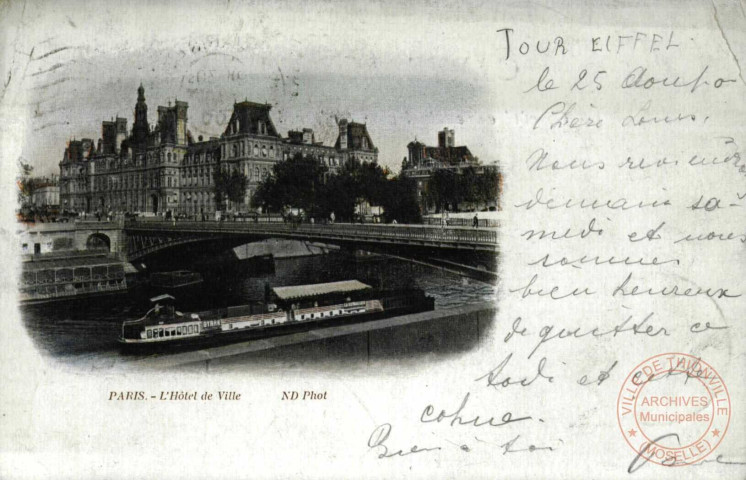 TOUR EIFFEL.
le 25 Aout
Chère
Nous
demain sa-
medi et nous
sommes
bien heureux
de quitter ce
et cette
cohue.
Bien à toi
PARIS. - L'Hôtel de Ville ND Phot
VILLE DE THIONVILLE
ARCHIVES
Municipales
(MOSELLE)